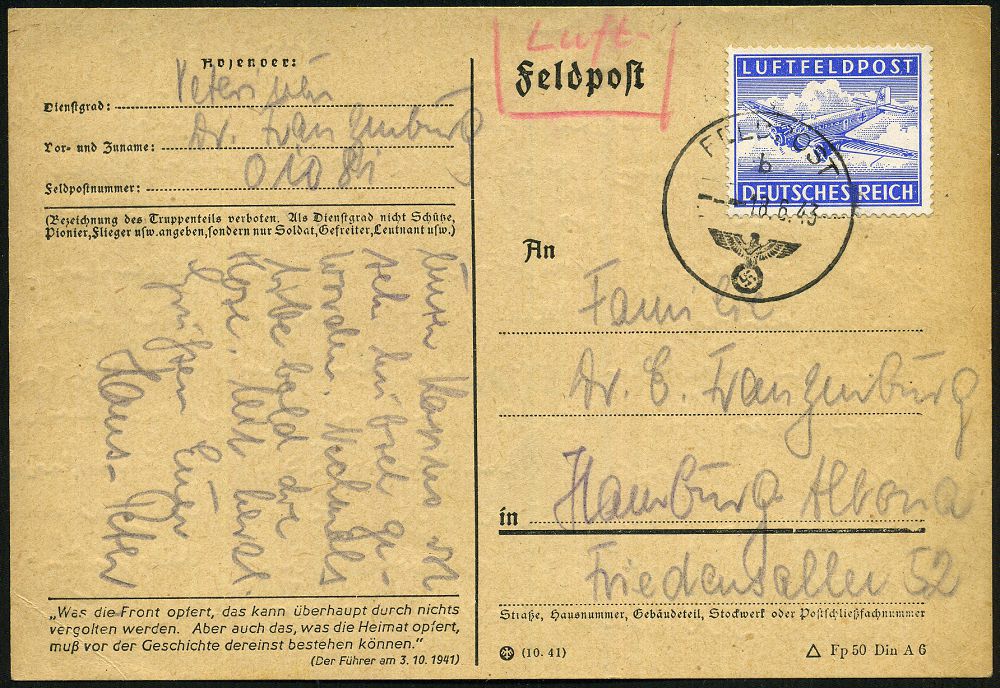 Absender:
Dienstgrad: Veterinär
Vor- und Zuname: Dr. Franzenburg
Feldpostnummer: 01081
(Bezeichnung des Truppenteils verboten. Als Dienstgrad nicht Schütze,
Pionier, Flieger usw. angeben, sondern nur Soldat, Gefreiter, Leutnant usw.)
worden.
bald die
Grüßen Euer
Hans-Peter
„Was die Front opfert, das kann überhaupt durch nichts
vergolten werden. Aber auch das, was die Heimat opfert,
muß vor der Geschichte dereinst bestehen können."
(Der Führer am 3. 10. 1941)
Luft-
Feldpost
LUFTFELDPOST
DEUTSCHES REICH
FELDPOST
b
18.6.43
An
Familie
Dr. E. Franzenburg
in Hamburg Altona
Friedensallee 52
Straße, Hausnummer, Gebäudeteil, Stockwerk oder Postschließfachnummer
(10. 41)
Δ Fp 50 Din A 6